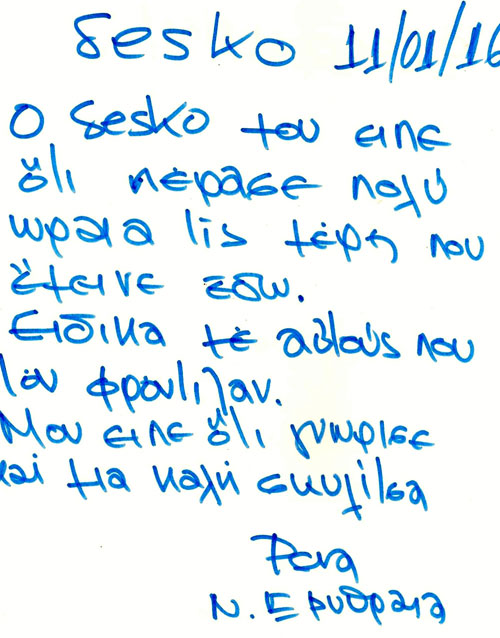 Sesko 11/01/16
Ο Sesko μου ειπε
ότι πέρασε πολύ
ωραια τις μέρες που
έμεινε εδω.
Ειδικα με αυτούς που
τον φροντιζαν.
Μου ειπε ότι γνωρισε
και μια καλή σκυλίτσα
Ρενα
Ν. Ερυθραια